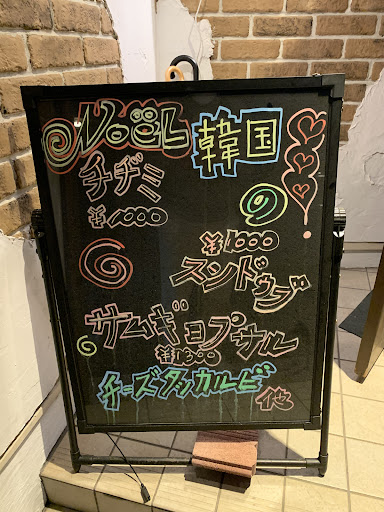 Noël 韓国
チヂミ の
¥1000
¥1000
スンドゥブ
サムギョプサル
チーズタッカルビ
他